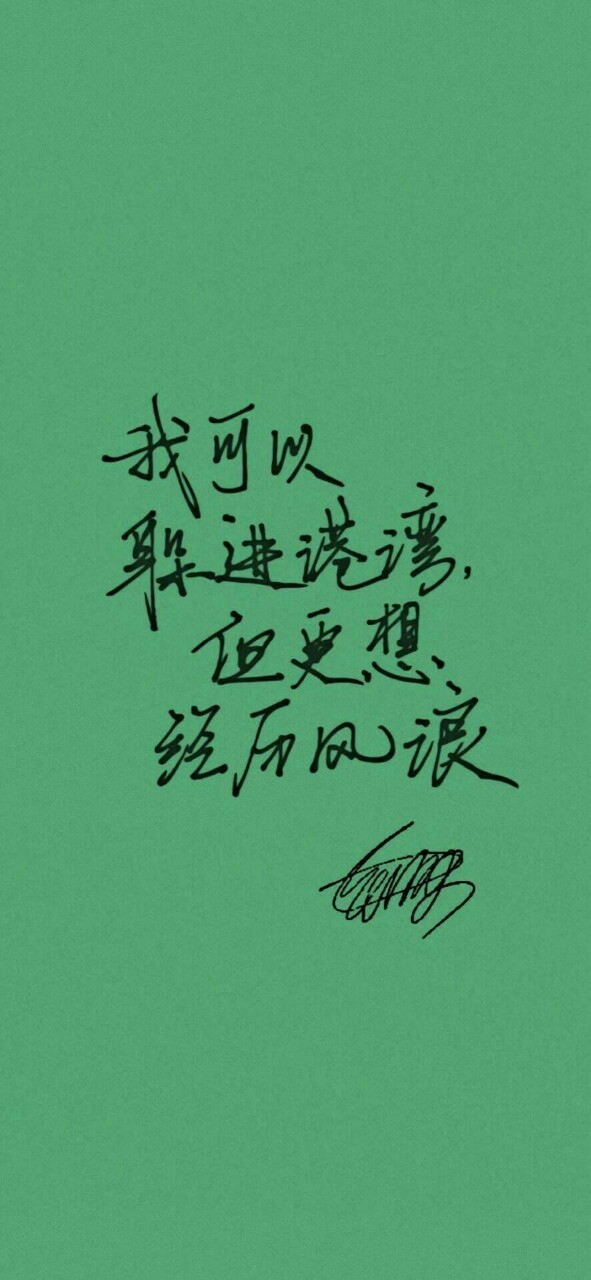 我可以
躲进港湾,
但更想
经历风浪